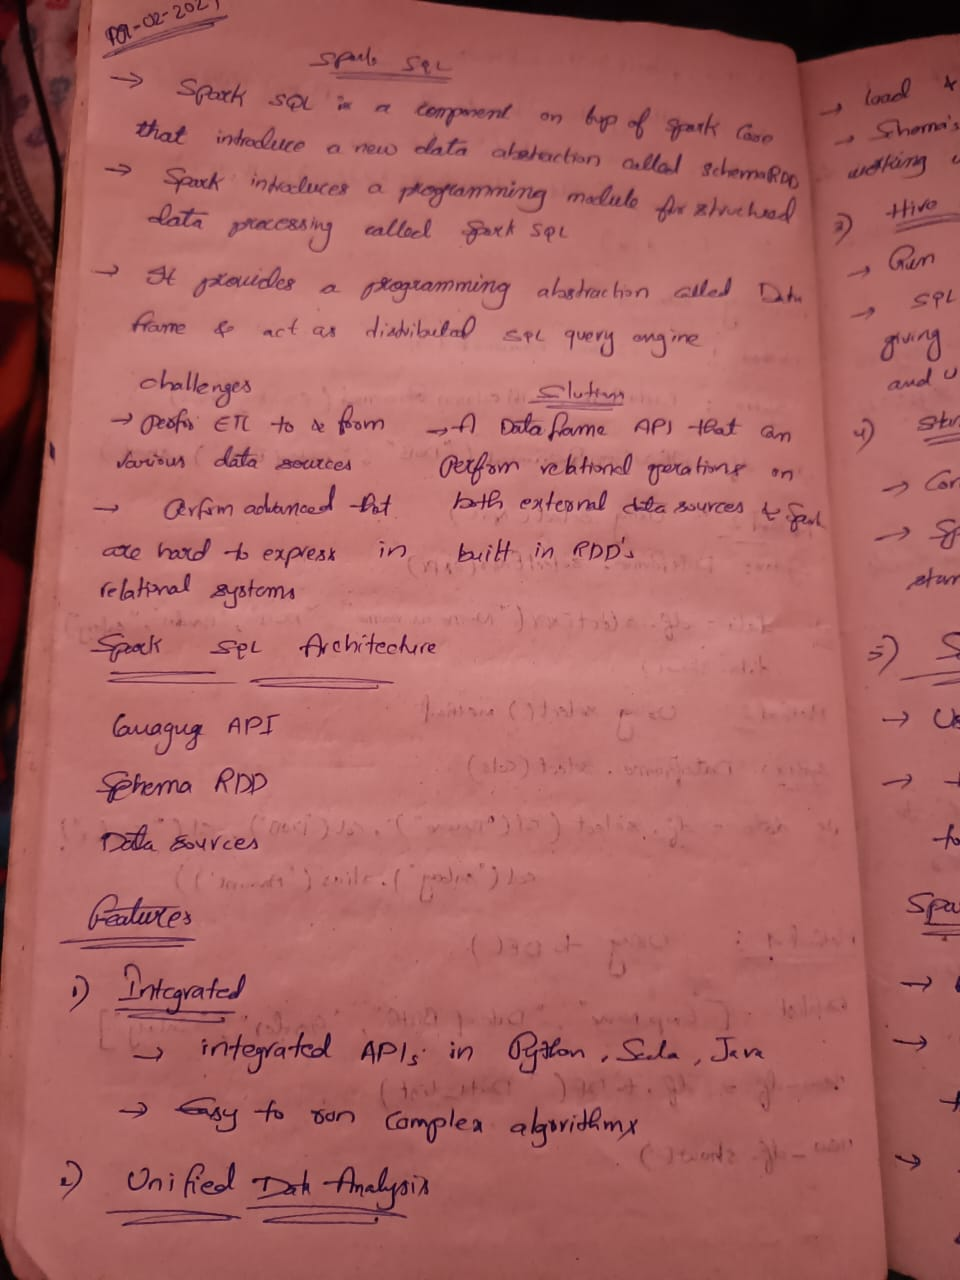 Spark SQL
→ Spark SQL is a component on top of Spark Core
that introduce a new data abstraction called schemaRDD
→ Spark introduces a programming module for structured
data processing called Spark SQL
→ It provides a programming abstraction called Data
frame & act as distributed SQL query engine
challenges
→ perfor ETL to & from
various data sources
→ Perform advanced that
are hard to express in
relational systems
Slutions
→ A Data frame API that can
perform relational operations on
both external data sources & Spark
built in RDD's
Spark SQL Architecture
Language API
Schema RDD
Data sources
Features
1) Integrated
→ integrated APIs in Python, Scala, Java
→ Easy to run complex algorithms
2) Unified Data Analysis
→ load &
→ Shema's
working
3) Hive
→ Run
→ SQL
giving
and
4)
→
→
5)
→
→
to
→
→
→